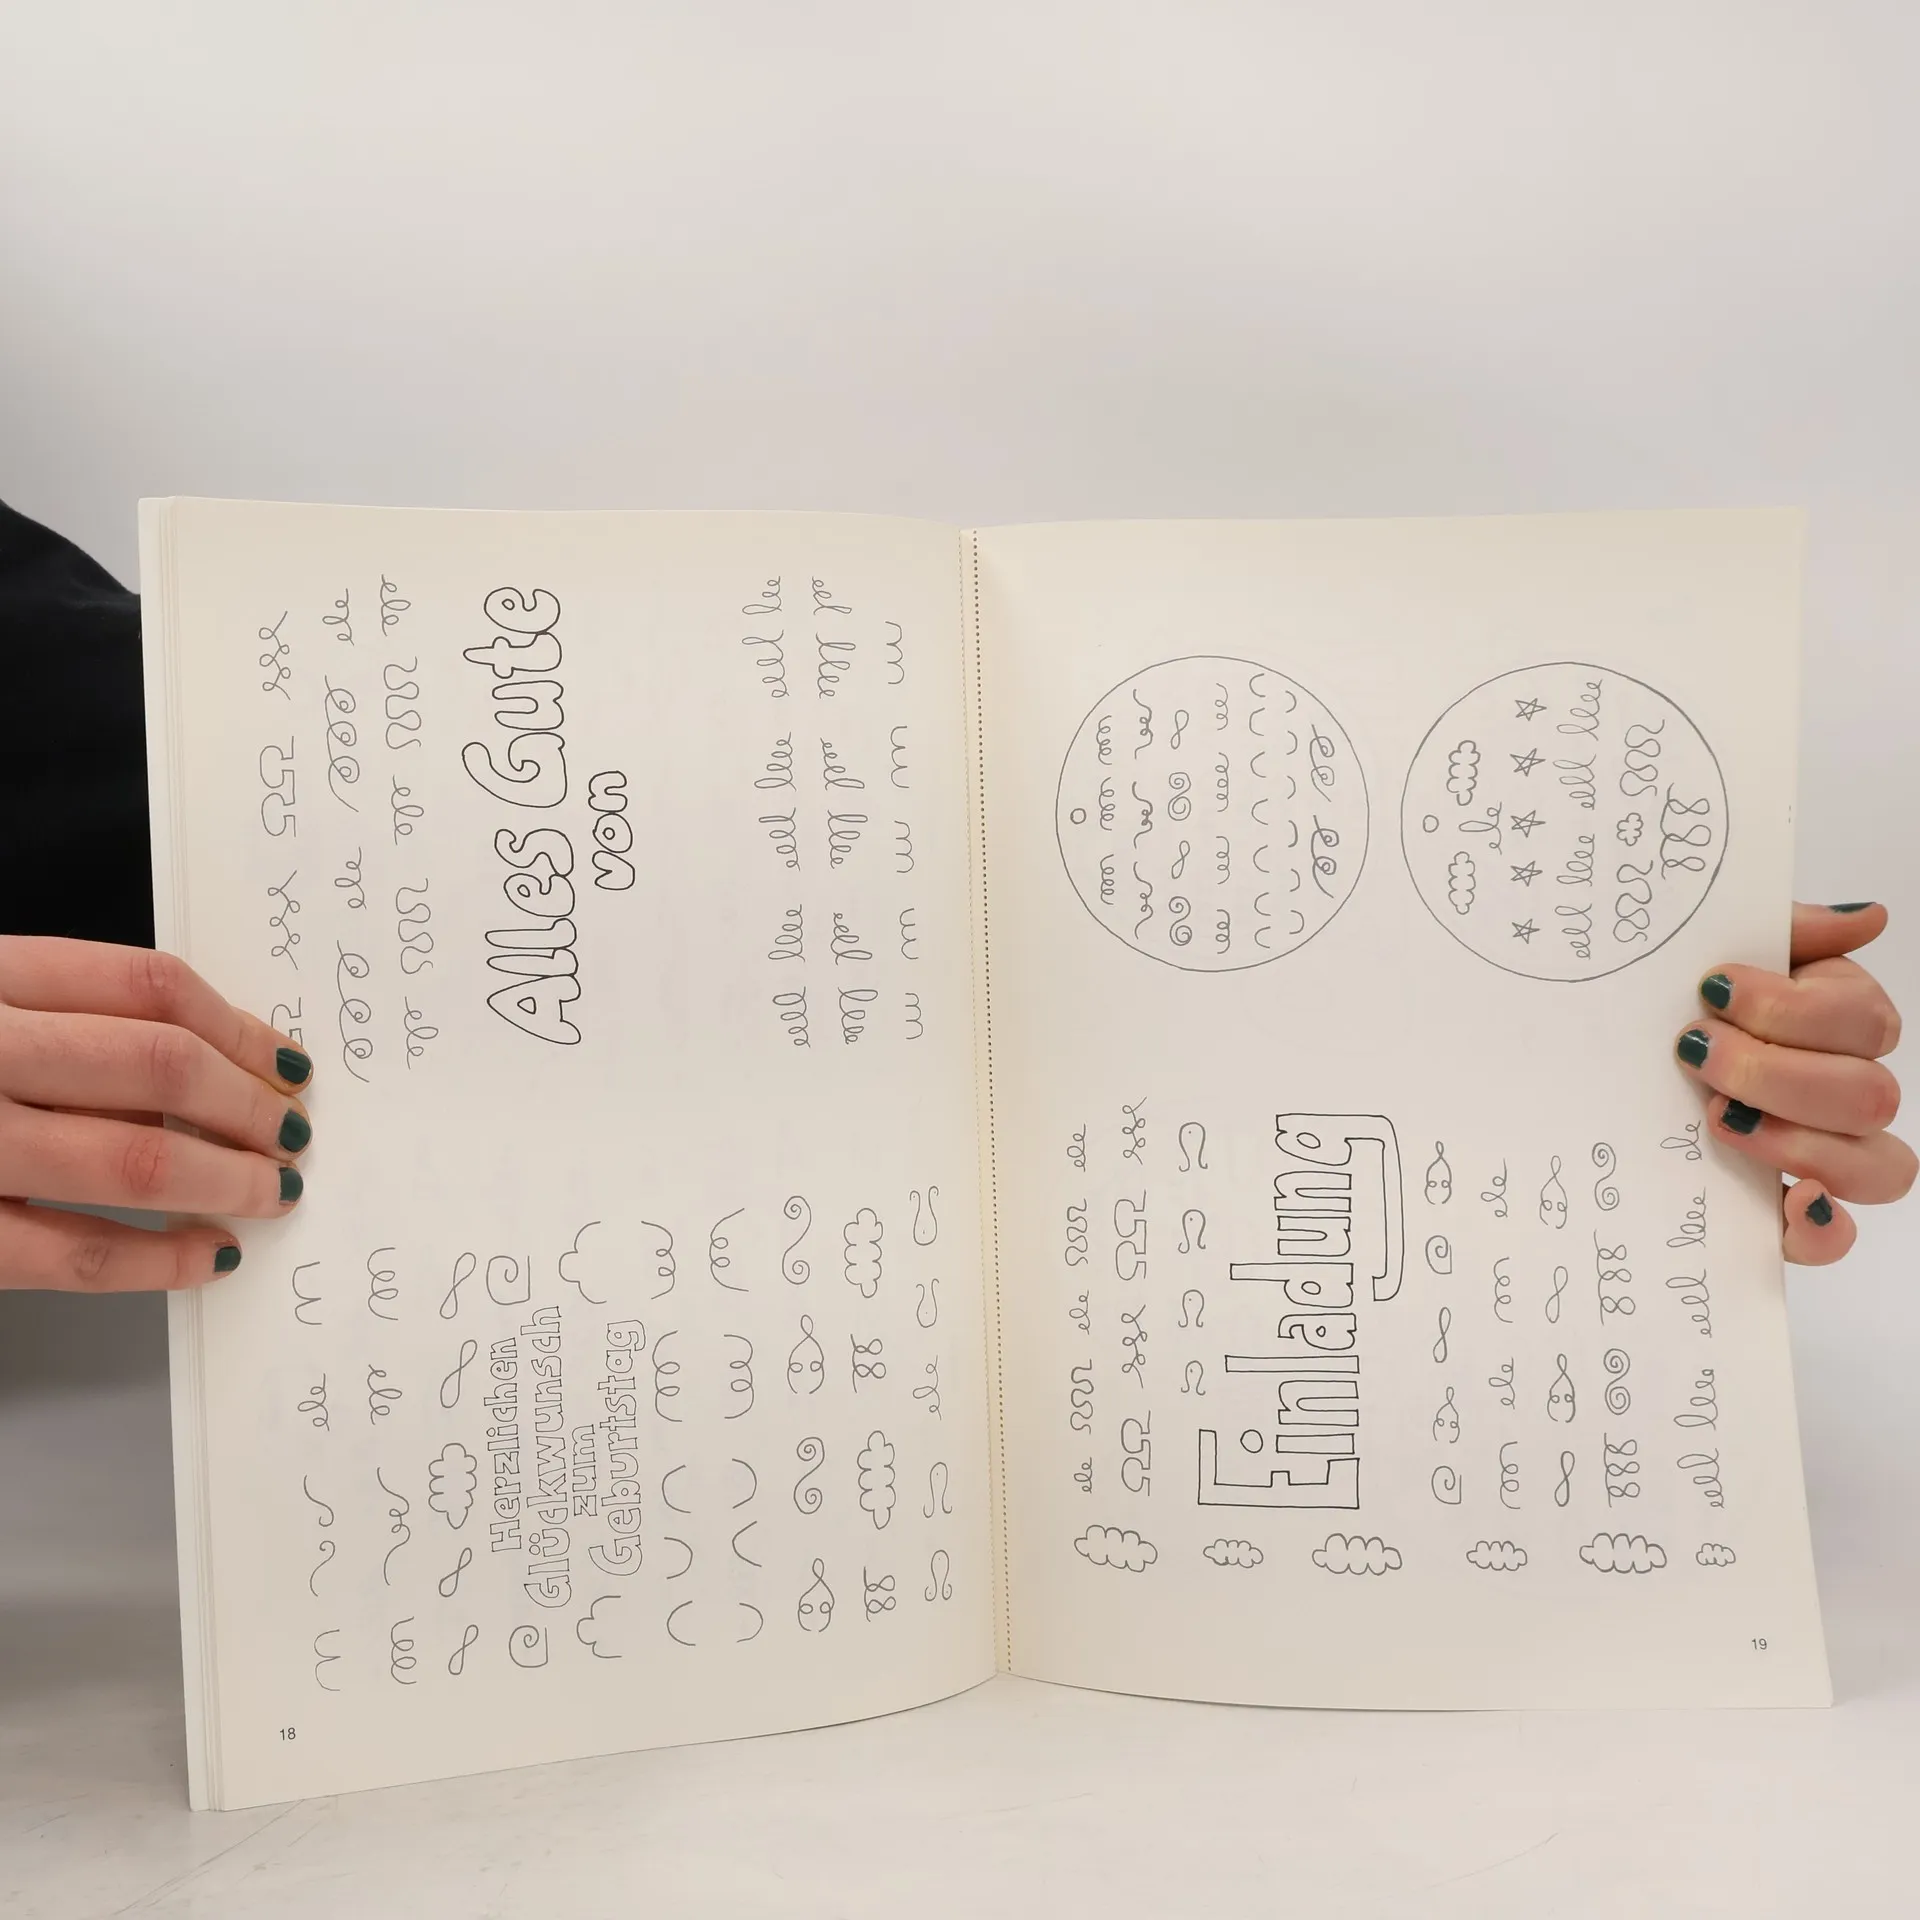 Alles Gute
von
Herzlichen
Glückwunsch
zum
Geburtstag
18
Einladung
19